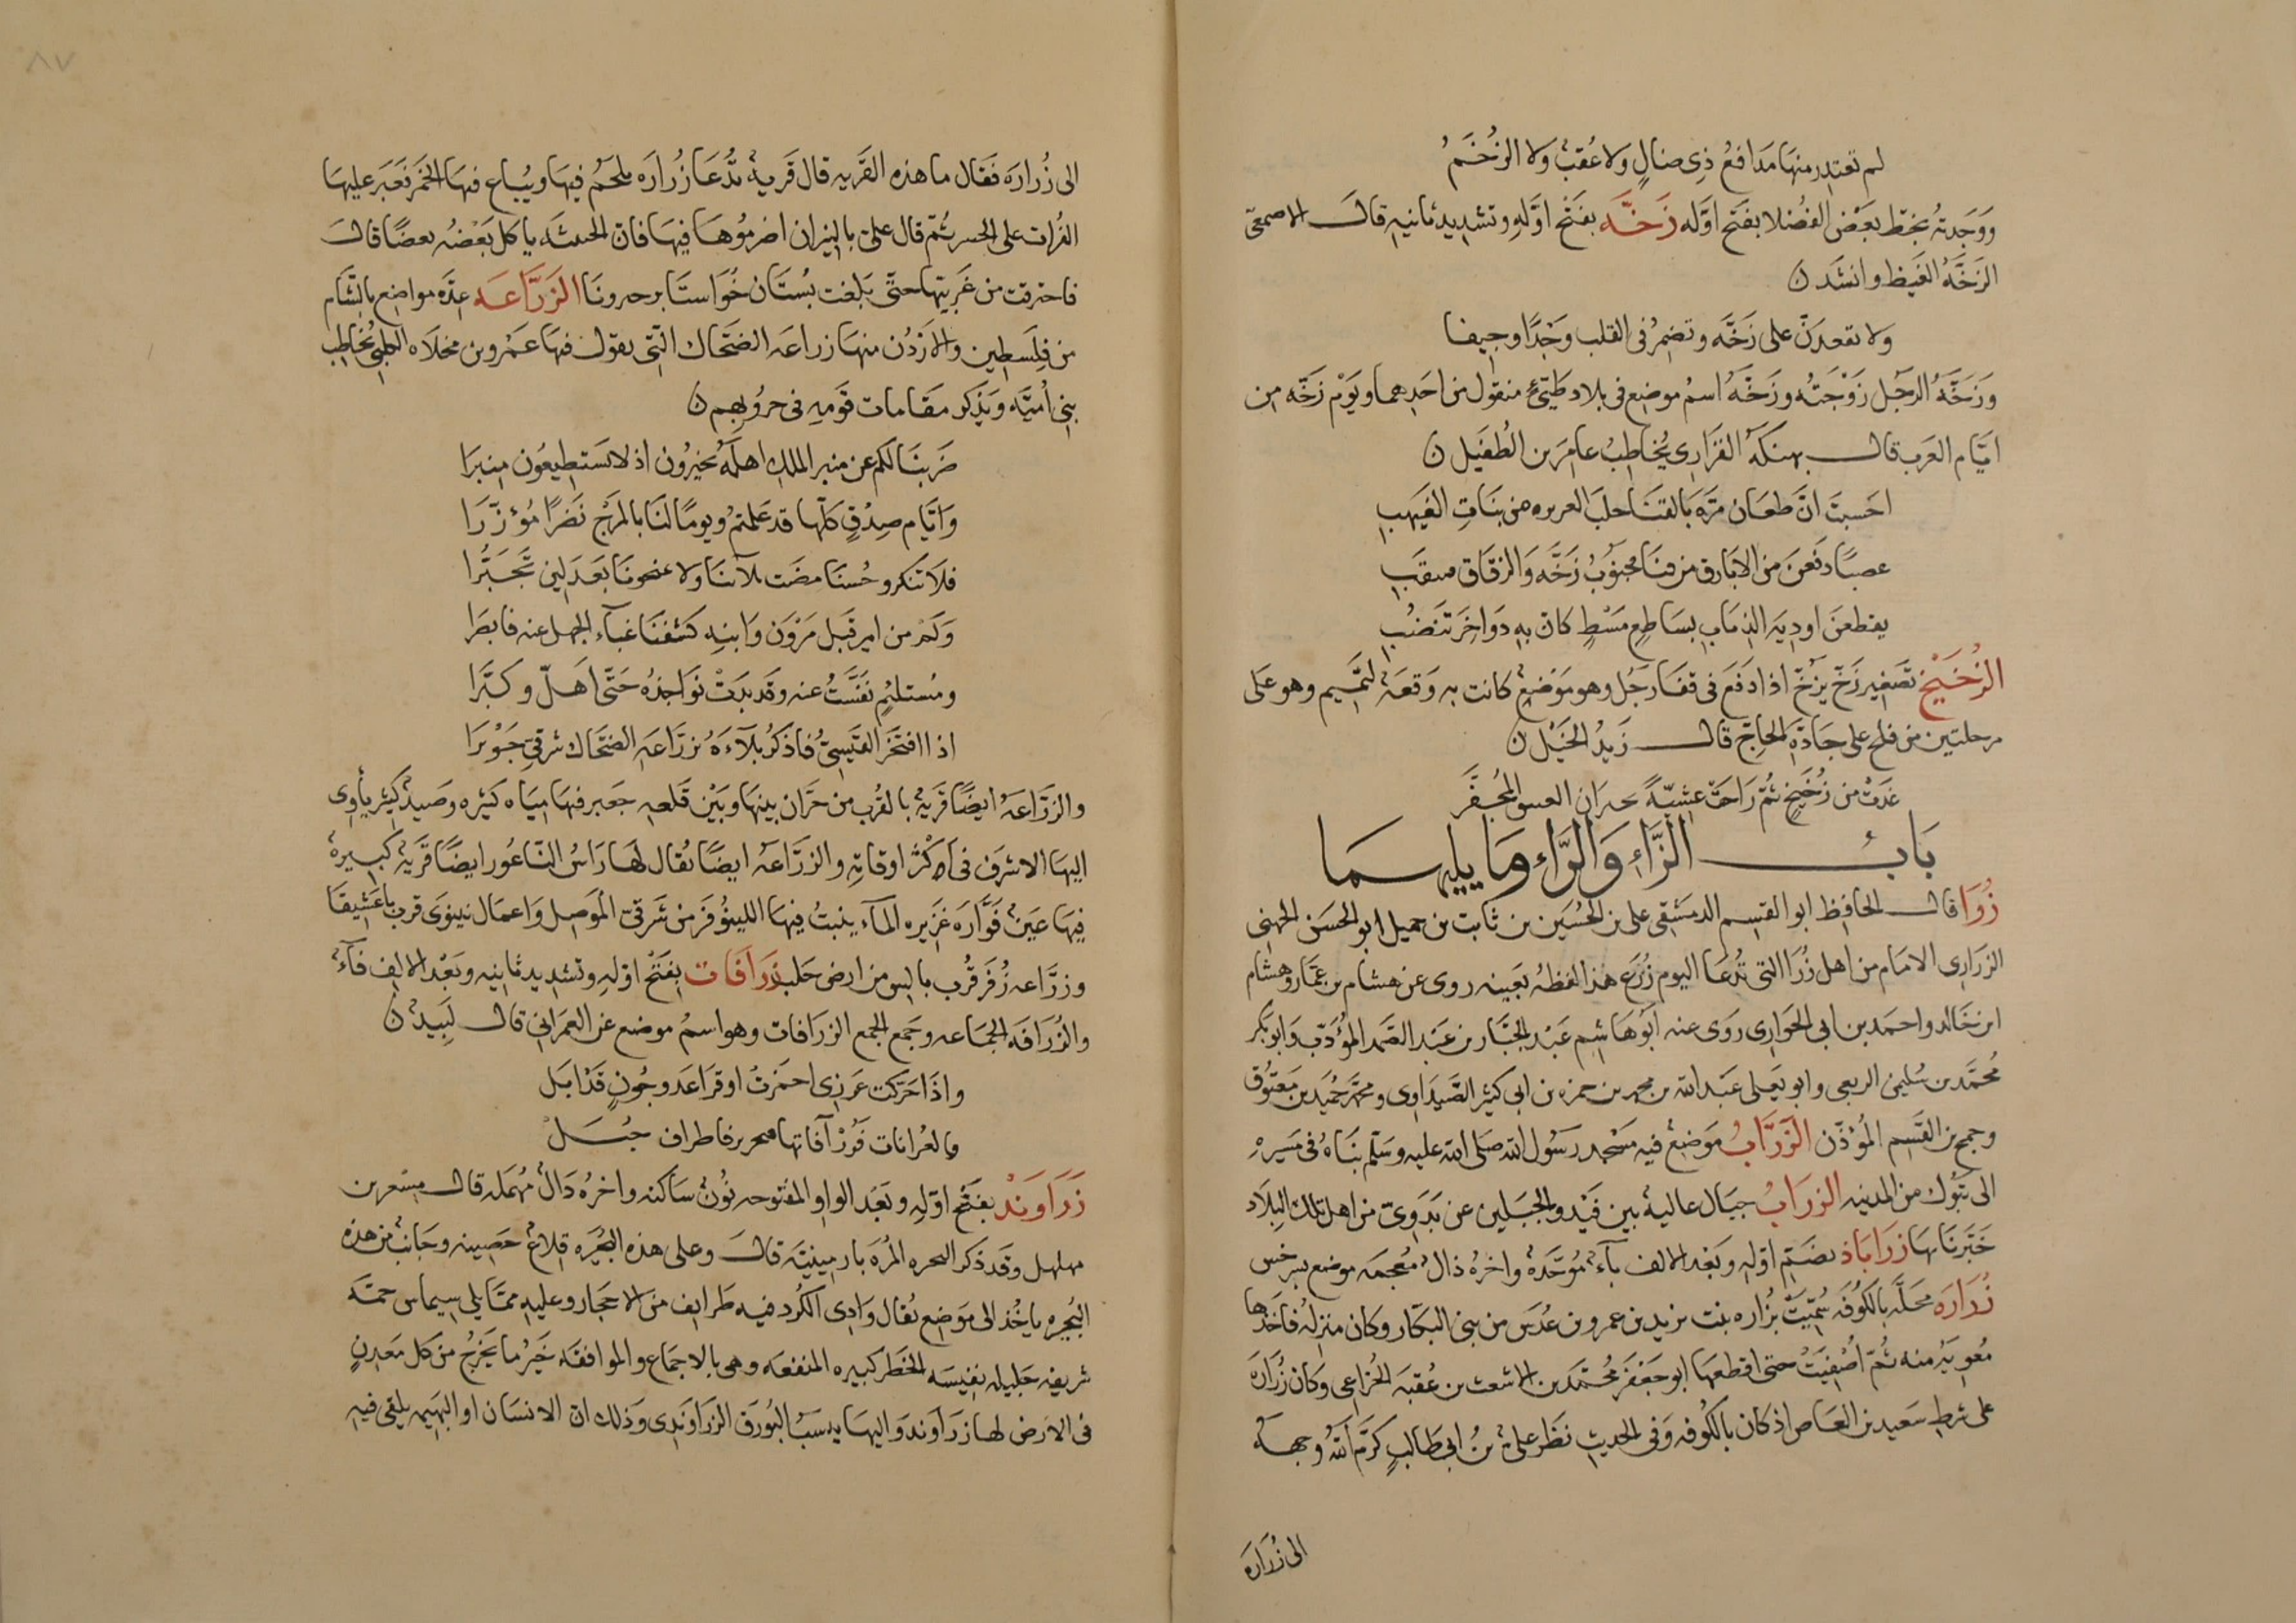 لم تعتدر منها مدافعُ ذِى ضالٍ ولا عُقَبٌ ولا الزُخَمُ
ووَجَدتهُ بخط بعض الفُضَلا بفتح اوّله زَخَّه بفَتح اوّلهِ وتشديد ثانيهِ قال الاصمعى
الزَخَّهُ الغَيظ وانشَد ن
ولا تقعدَنّ على زَخَّه وتضمِرُ فى القلب وَجْدًا وجيفا
وَزَخَّهُ الرجُل زَوْجَتُه وزَخَّهُ اسمُ موضِع فى بلاد طَيّئ منقول من احَدِهما ويَوْم زخّه من
ايّام العَرب قال بهنكه الفَزارى يُخاطبُ عامَر بن الطُفَيل ن
احَسبتَ انَّ طعان مرّه بالقنَا حلبَ العريره من بَنَاتِ الغَيهَب
عصبًا دفعنَ من الابَارق من قنَا مجنُوبُ زَخَّه وَالزقاق
يقطعنَ اودِيَه الذِمَابِ بسَاطِعٍ مسْطٍ كان بهِ دَواخِرَ تنضُبِ
الزُخَيْخ تصَغير زَخّ يزُخّ اذا دَفَع فى قفَا رجُل وهو مَوْضِعٌ كانت به وَقعَةٌ لتَميم وهو عَلى
مرحلتين من فلج على جَادّه الحَاجّ قال زَيدُ الخَيْل ن
غدَتْ من زُخَيخٍ ثُمّ رَاحَت عشيّهً بحبران العس المُجفَّر
بَابُ الزَّاءِ وَالرَّاءِ وَمَا يليهما
زُرَا قال الحافِظ ابو القسِم الدمشقى على بن الحُسَين بن ثابت بن جميل ابو الحَسَن الجهنى
الزرَارى الامَام من اهل زُرَا التى تُدعَا اليوم زُرَع هذا لفظهُ بعَينه روى عن هشام بن عمّار وهشام
ابن خالد واحمد بن ابى الحَوارى رَوى عنه ابُو هَاشِم عَبْد الجَبّار بن عَبْد الصَّمد المؤدّب وَابو بكر
مُحمّد بن سُليمٰن الربعى وابو يَعلى عَبد الله بن محمد بن حمزه بن ابى كثير الصَّيدَاوى ومحمّد حُمَيد بن مَعتُوق
وجمح بن القَسِم المُؤذّن الزَرَّابُ مَوضعٌ فيه مَسْجد رسُول الله صَلى الله عليه وسَلّم بنَاهُ فى مَسيرهِ
الى تبُوك من المدينه الزرَابُ جبَال عالية بين فَيْد والجَبَلين عن بَدَوى من اهل تلك البِلَاد
خَبّرنَا بها زرَابَاذ بضَمّ اوّلهِ وبَعْد الالف بَآءٌ مُوَحَّدَهٌ واخرهُ ذالٌ مُعجمَه موضع بسرخس
زُرَارَه محَلّه بالكُوفَه سُمّيَتْ بزُراره بنت يزيد بن عمرو بن عُدَس من بنى البَكّار وكان منزلهُ فاخَذهَا
مُعويَه منه ثُمّ اصُفِيَتْ حتى اقطعهَا ابو جَعْفَر مُحمّد بن الاشعث بن عُقبَه الخُزاعى وكان زُرَارَه
على شرطِ سَعيد بن العَاص اذ كان بالكُوفه وفى الحَديثِ نَظر علىّ بنُ ابى طَالبٍ كرّم اللهُ وجهَهُ
الى زُرَارَه
الى زُرارَه فقَال ما هذه القَريه قال قَريةٌ تُدعَا زُرارَه يلحمُ فيهَا ويُبَاع فيهَا الخَمر فعَبَر عليهَا
الفُرات على الجسر ثُمّ قال علىّ بالنِيران اضرمُوهَا فيهَا فانّ الخبيث ياكل بَعْضُه بعضًا قال
فاحترقت من غَربيّها حتى بَلغت بُسْتَان خُوَاستَا برحرونَا الزَرَّاعَه عِدّه مواضِع بالشَام
من فِلَسطِين والارْدُن منهَا زراعَه الضَحّاك التّى يقول فيهَا عَمْرو بن مخلاه الكلبى يُخَاطِب
بنى اُميّه ويَذكر مقَامات قَومِهِ فى حروُبِهم ن
ضَربنَا لكم عن منبر المُلك اهلَهُ بحَيرُون اذ لا تستطيعُون منبرَا
وَايّام صِدْقٍ كلّها قد عَلمتمُ ويومًا لنَا بالمَرْج نَصْرًا مُؤزّرَا
فلَا تنكروا حُسنَا مضَت بلآئنَا ولا تمنحونَا بعَد لينِ تجَبُّرا
وَكم من امير قَبل مَروَن وَابنِه كشفنَا غطآء الجهل عنه فابصَرا
ومُستلئمٍ نفّستُ عنه وقَد بَدتْ نوَاجذُهُ حَتّى اهَلّ وكبَّرا
اذا افتخَر القَيسىُّ فاذكرُ بلآءَهُ بزرّاعَه الضَحّاك شرقىّ جَوْبَرا
والزرّاعَهُ ايضًا قَريةٌ بالقُرب من حرّان بينهَا وبَيْن قَلعه جَعبر فيهَا ميَاه كثيره وصَيدٌ كثير يأوى
اليهَا الاشرَف فى اكثر اوقاته والزرّاعَهُ ايضًا يُقال لهَا رَاسُ النّاعُور ايضًا قَريةٌ كبيرهٌ
فيهَا عَينٌ فَوّارَه غزيره المآء ينبتُ فيهَا اللينُوفر من شَرقى المَوصِل وَاعمَال نينوَى قرب باعَشيقَا
وزرّاعه زُفَر قُرب بالس من ارض حَلب زَرَافَات بفَتحْ اوّلهِ وتشديد ثانيه وبَعْد الالف فآءٌ
والزُرَافَه الجمَاعه وجَمع الجَمع الزرَافات وهو اسمُ موضِع عن العمرَانى قال لَبيدٌ ن
واذَا حَرّكت غَرزى احمزتُ او قرَا عَدو جُونٍ قَدْ ابَل
بالغُرَابَات فَزُرّافاتها فبخَنزيرفاطراف حُبَلْ
زَرَاوَنْد بفَتْح اوّلهِ وبَعْد الواو المفْتوحه نُونٌ سَاكنه واخرهُ دَالٌ مُهملَه قال مِسْعر بن
مهلهل وقَد ذَكَر البحره المُره بارمِينيّه قال وعلى هذه البُحَيره قِلاعٌ حَصِينه وجَانبٌ من هذه
البُحَيره ياخُذ الى مَوضِع يُقال وَادى الكُرد فيه طَرايف من الاحجَار وعليه ممّا يلى سيماس حمّه
شريفه جَليله نفيسَه الخَطر كبيره المنفعَه وهى بالاجمَاع والموافقه خَيرُ ما يَخرجُ من كل معَدنٍ
فى الارض لهَا زرَاوَند وَاليهَا ينسَبُ البُورَق الزرَاوَندى وذلك انّ الانسَان او البَهيمه يلقى فيه